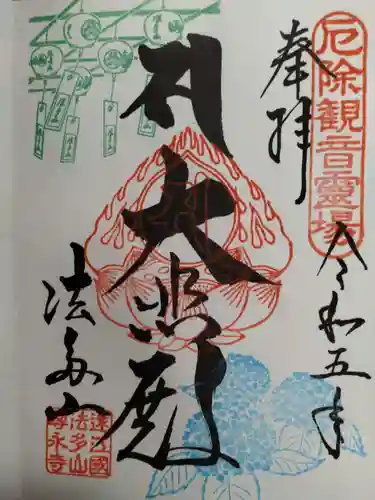 厄除観音靈場
奉拝
令和五年
大悲殿
法多山
遠江國
法多山
尊永寺